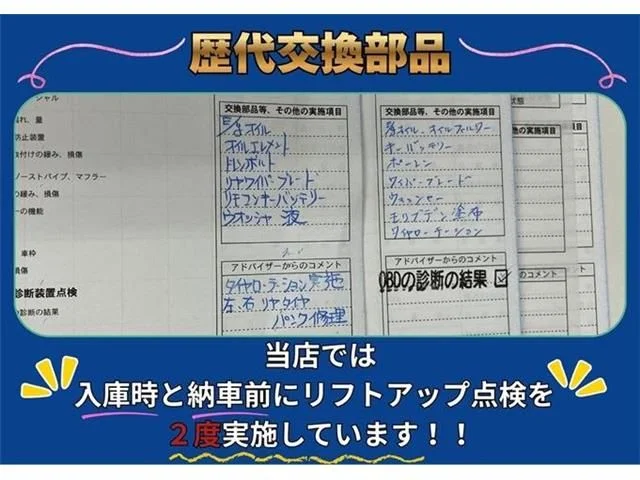 歴代交換部品
シャル
漏れ、量
防止装置
取付けの緩み、損傷
ノーストパイプ、マフラー
の緩み、損傷
ーの機能
車枠
損傷
診断装置点検
の診断の結果
交換部品等、その他の実施項目
オイル
オイルエレメント
ドレンボルト
リヤワイパーブレード
リモコンキーバッテリー
ウオッシャ 液
アドバイザーからのコメント
タイヤローテーション実施
左、右リヤタイヤ
パンク修理
交換部品等、その他の実施項目
オイル、オイルフィルター
キーバッテリー
ポーレン
ワイパーブレード
ウォッシャー
モリブデン塗布
タイヤローテーション
アドバイザーからのコメント
OBDの診断の結果 ☑
状態
の実施項目
実施項目
のコメント
コメント
当店では
入庫時と納車前にリフトアップ点検を
２度実施しています！！